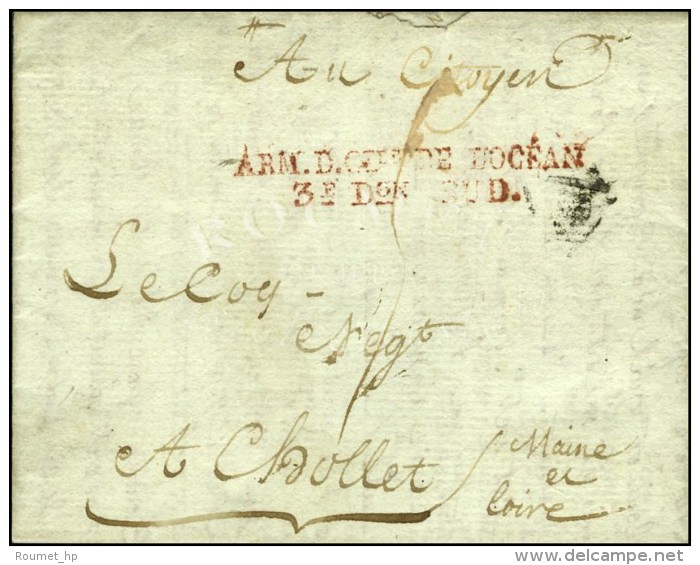 Au Citoyen
ARM. D. CTES DE L'OCÉAN
3E DON SUD.
Le Coq -
Negt
A Chollet
Maine
et
Loire
Roumet_hp
delcampe.net